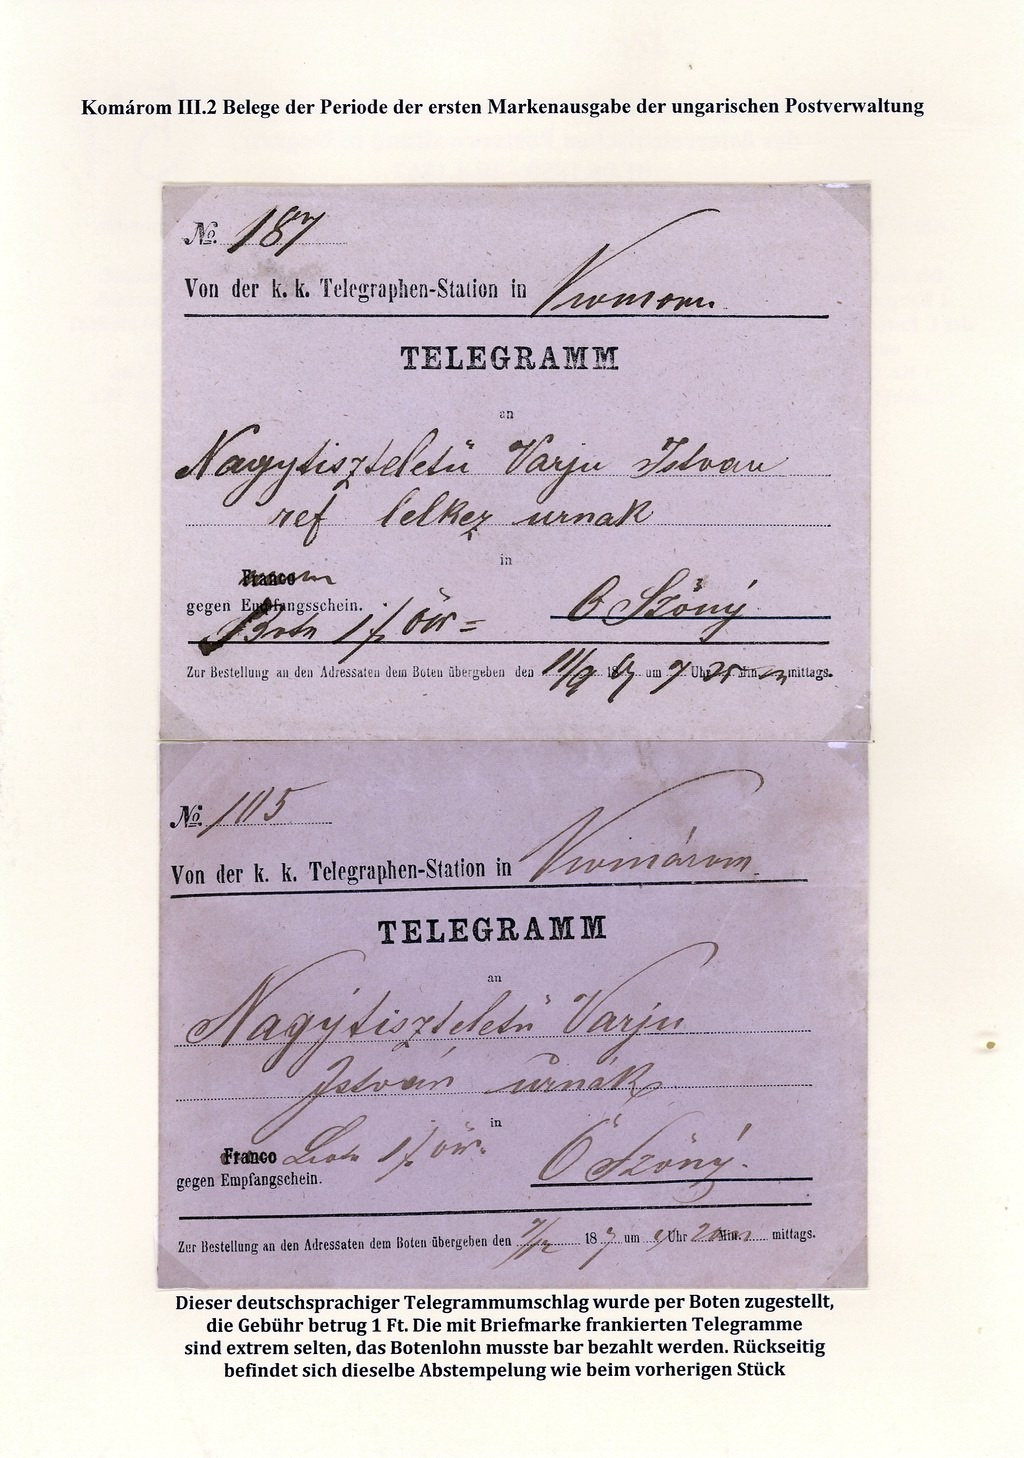 Komárom III.2 Belege der Periode der ersten Markenausgabe der ungarischen Postverwaltung
No. 187
Von der k. k. Telegraphen-Station in
TELEGRAMM
an
Nagytiszteletü Varju Istvan
ref lelkez urnak
in
Franco
gegen Empfangsschein.
O Szöný
Botn 1 f öw =
Zur Bestellung an den Adressaten dem Boten übergeben den 11/9 18 67 um 7 Uhr 25 Min. mittags.
No. 105
Von der k. k. Telegraphen-Station in
TELEGRAMM
an
Nagýtiszteletü Varju
István urnák
in
Franco
gegen Empfangschein.
Ö Szöný.
Zur Bestellung an den Adressaten dem Boten übergeben den 18 7 um Uhr Min. mittags.
Dieser deutschsprachiger Telegrammumschlag wurde per Boten zugestellt,
die Gebühr betrug 1 Ft. Die mit Briefmarke frankierten Telegramme
sind extrem selten, das Botenlohn musste bar bezahlt werden. Rückseitig
befindet sich dieselbe Abstempelung wie beim vorherigen Stück